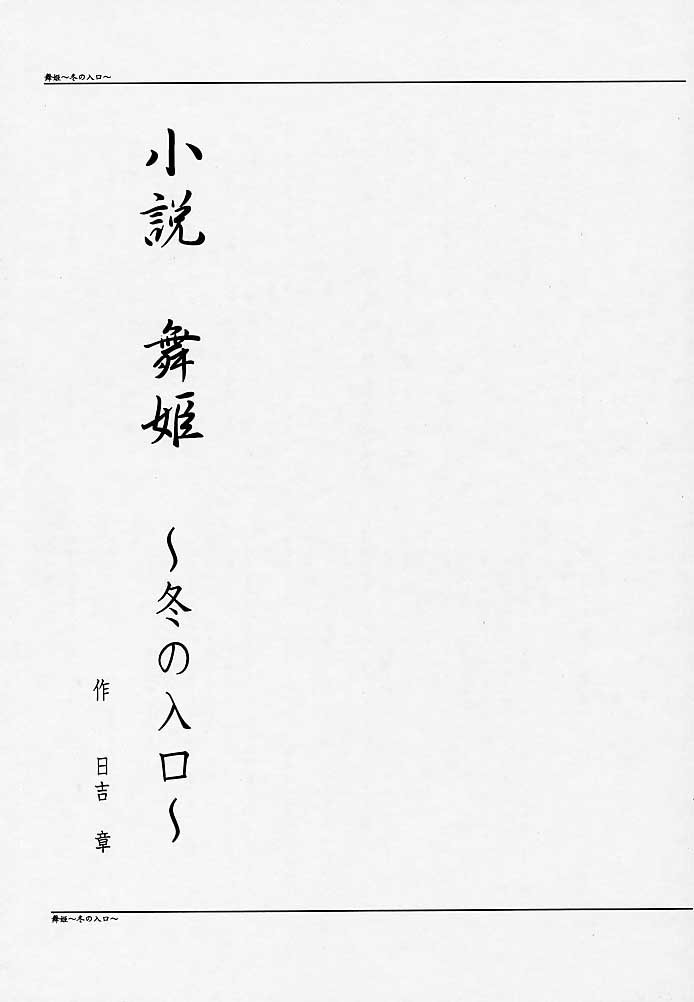 舞姫~冬の入口~
小説 舞姫 ~冬の入口~
作 日吉 章
舞姫~冬の入口~